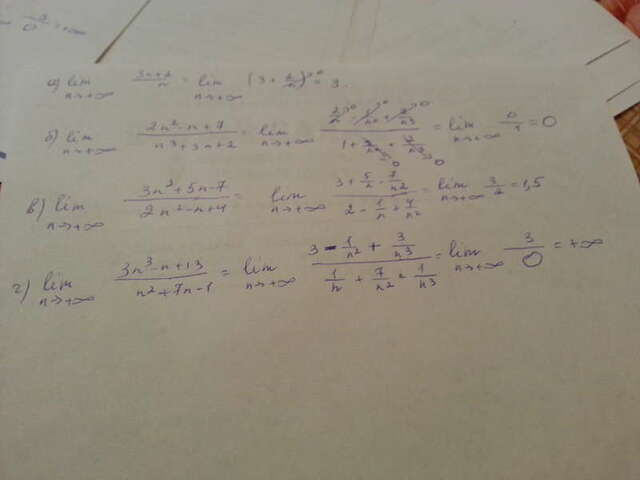 3/0 = +∞
а) lim n→+∞ (3n+2)/n = lim n→+∞ (3 + 2/n)→0 = 3
б) lim n→+∞ (2n²-n+7)/(n³+3n+2) = lim n→+∞ = lim n→+∞ 0/1 = 0
в) lim n→+∞ (3n²+5n-7)/(2n²-n+4) = lim n→+∞ (3+5/n-7/n²)/(2-1/n+4/n²) = lim n→+∞ 3/2 = 1,5
г) lim n→+∞ (3n³-n+13)/(n²+7n-1) = lim n→+∞ (3-1/n²+3/n³)/(1/n+7/n²-1/n³) = lim n→+∞ 3/0 = +∞